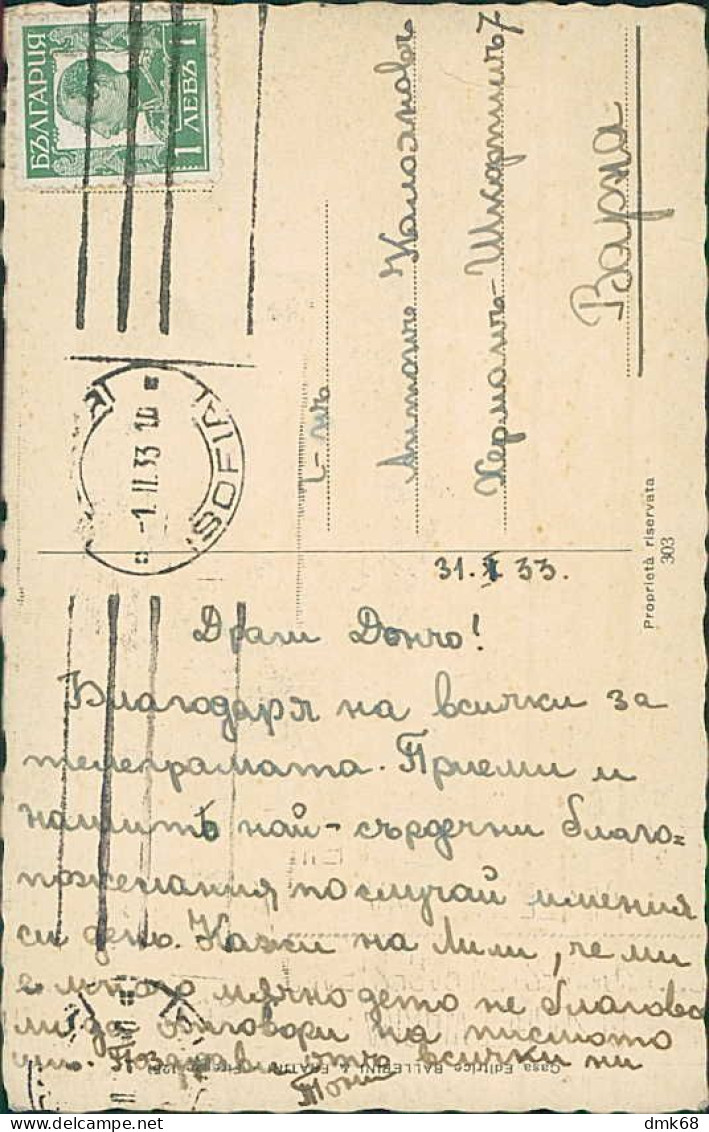 БЪЛГАРИЯ
1 ЛЕВЪ 1
SOFIA
-1.II.33 10
Г-нъ
Антонъ Калояновъ
Херманъ-Шкорпилъ 7
Варна
Proprietà riservata
303
31.I.33.
Драги Дончо!
Благодаря на всички за
телеграмата. Приеми и
нашитѣ най-сърдечни благо=
пожелания по случай имения
си день. Кажи на Лили, че ми
е много мячно дето не благово
ли да отговори на писмото
ми. Поздрави отъ всички ни
Тони
Casa Editrice BALLERINI & FRATINI
dmk68